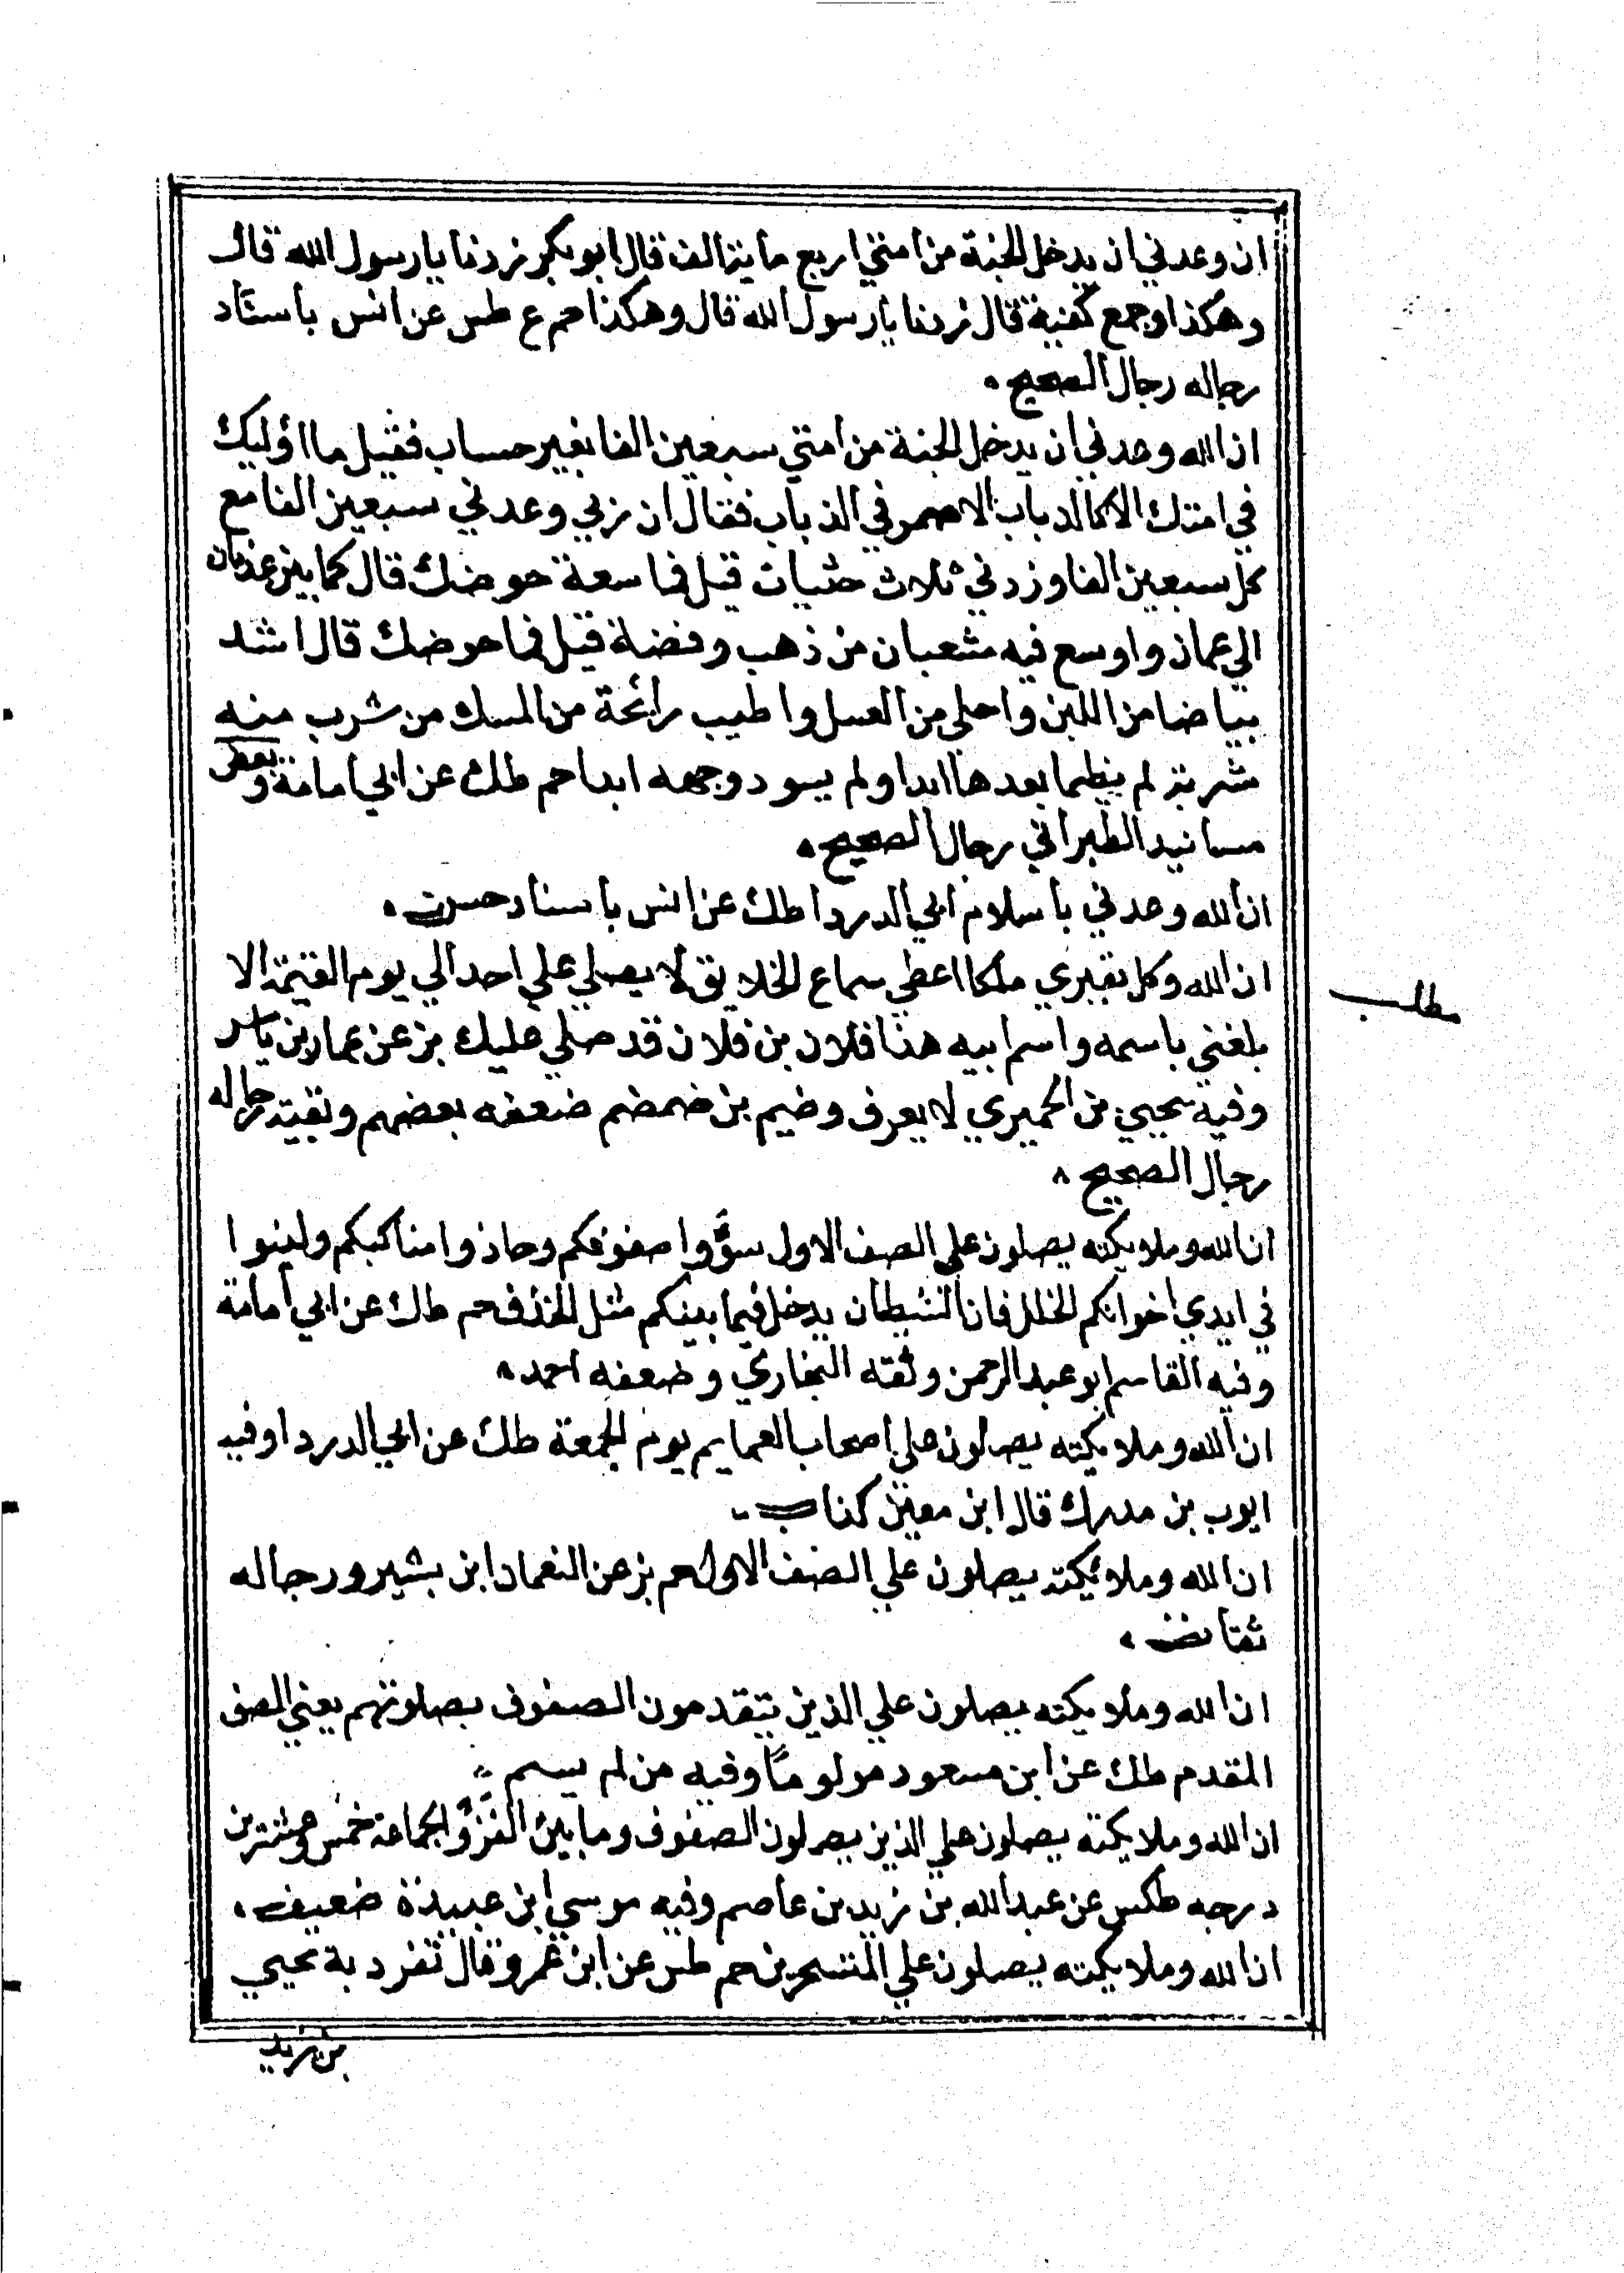 ان وعدني ان يدخل الجنة من امتي اربع ماية الف قال ابو بكر زدنا يا رسول الله قال
وهكذا وجمع كفيه قال زدنا يا رسول الله قال وهكذا حم ع طس عن انس باسناد
رجاله رجال الصحيح
ان الله وعدني ان يدخل الجنة من امتي سبعين الفا بغير حساب فقيل ما اوليك
في امتك الا كالذباب الاصهب في الذباب فقال ان ربي وعدني سبعين الفا مع
كل سبعين الفا وزدني ثلاث حثيات قيل فما سعة حوضك قال كما بين عدن
الي عمان واوسع فيه مثعبان من ذهب وفضة قيل فما حوضك قال اشد
بياضا من اللبن واحلي من العسل واطيب رائحة من المسك من شرب منه
شربة لم يظما بعدها ابدا ولم يسود وجهه ابدا حم طك عن ابي امامة وبعض
مسانيد الطبراني رجال الصحيح
ان الله وعدني باسلام ابي الدردا طك عن انس باسناد حسن
ان الله وكل بقبري ملكا اعطي سماع الخلايق لا يصلي علي احد الي يوم القيمة الا
بلغني باسمه واسم ابيه هذا فلان بن فلان قد صلي عليك بز عن عمار بن ياسر
وفيه بن الحميري لا يعرف وضيم بن ضمضم ضعفه بعضهم وبقية رجاله
رجال الصحيح
ان الله وملايكته يصلون علي الصف الاول سوّوا صفوفكم وحاذوا مناكبكم ولينوا
في ايدي اخوانكم الخلل فان الشيطان يدخل فيما بينكم مثل الخذف حم طك عن ابي امامة
وفيه القاسم ابو عبد الرحمن وثقه البخاري وضعفه احمد
ان الله وملايكته يصلون علي اصحاب العمايم يوم الجمعة طك عن ابي الدردا وفيه
ايوب بن مدرك قال ابن معين كذاب
ان الله وملائكته يصلون علي الصف الاول حم بز عن النعمان ابن بشير ورجاله
ثقات
ان الله وملايكته يصلون علي الذين يتقدمون الصفوف بصلوتهم يعني الصف
المقدم طك عن ابن مسعود وفيه من لم يسم
ان الله وملايكته يصلون علي الذين يصلون الصفوف وما بين الفذ والجماعة خمس وعشرين
درجه طكس عن عبد الله بن زيد بن عاصم وفيه موسي ابن عبيدة ضعيف
ان الله وملايكته يصلون علي المتسحرين حم طس عن ابن عمر وقال تفرد به يحيي
بن يزيد
مطلب